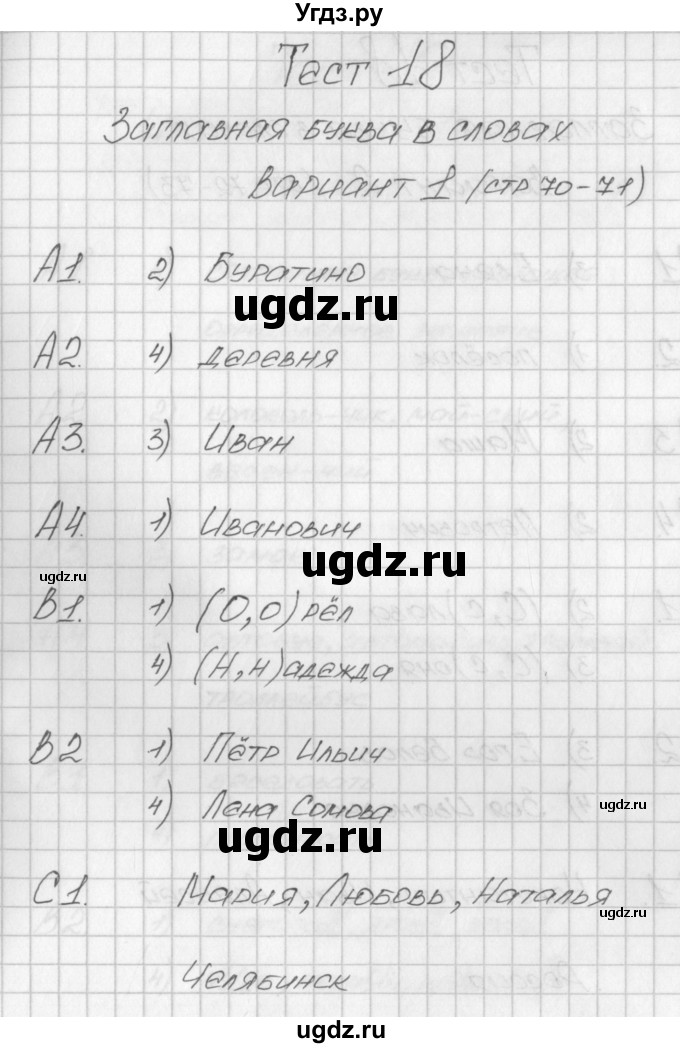 Угдз.ру
Тест 18
Заглавная буква в словах
Вариант 1 (стр 70-71)
А1. 2) Буратино
ugdz.ru
А2. 4) деревня
А3. 3) Иван
А4. 1) Иванович
ugdz.ru
ugdz.ru
В1. 1) (О,о)рёл
4) (Н,н)адежда
В2 1) Пётр Ильич
4) Лена Сомова
ugdz.ru
ugdz.ru
С1. Мария, Любовь, Наталья
ugdz.ru
Челябинск
ugdz.ru